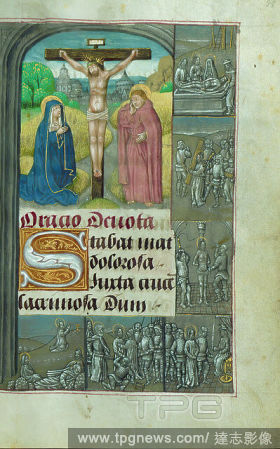 Oracio Devota
Stabat mat
dolorosa
Juxta cruc
lacrimosa Dum
TPG
www.tpgnews.com/ 達志影像